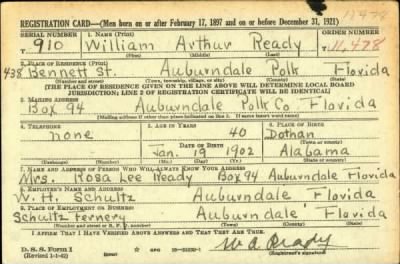 11478
REGISTRATION CARD—(Men born on or after February 17, 1897 and on or before December 31, 1921)
SERIAL NUMBER 1. NAME (Print) ORDER NUMBER
910 William Arthur Ready 11,478
(First) (Middle) (Last)
2. PLACE OF RESIDENCE (Print)
438 Bennett St. Auburndale Polk Florida
(Number and street) (Town, township, village, or city) (County) (State)
[THE PLACE OF RESIDENCE GIVEN ON THE LINE ABOVE WILL DETERMINE LOCAL BOARD
JURISDICTION; LINE 2 OF REGISTRATION CERTIFICATE WILL BE IDENTICAL]
3. MAILING ADDRESS
Box 94 Auburndale Polk Co. Florida
[Mailing address if other than place indicated on line 2. If same insert word same]
4. TELEPHONE 5. AGE IN YEARS 6. PLACE OF BIRTH
none 40 Dothan
DATE OF BIRTH (Town or county)
Jan. 19 1902 Alabama
(Exchange) (Number) (Mo.) (Day) (Yr.) (State or country)
7. NAME AND ADDRESS OF PERSON WHO WILL ALWAYS KNOW YOUR ADDRESS
Mrs. Rosa Lee Ready Box 94 Auburndale Florida
8. EMPLOYER'S NAME AND ADDRESS
W. H. Schultz Auburndale Florida
9. PLACE OF EMPLOYMENT OR BUSINESS
Schultz Fernery Auburndale Florida
(Number and street or R. F. D. number) (Town) (County) (State)
I AFFIRM THAT I HAVE VERIFIED ABOVE ANSWERS AND THAT THEY ARE TRUE.
D. S. S. Form 1 W A Ready
(Revised 1-1-42) (Registrant's signature)